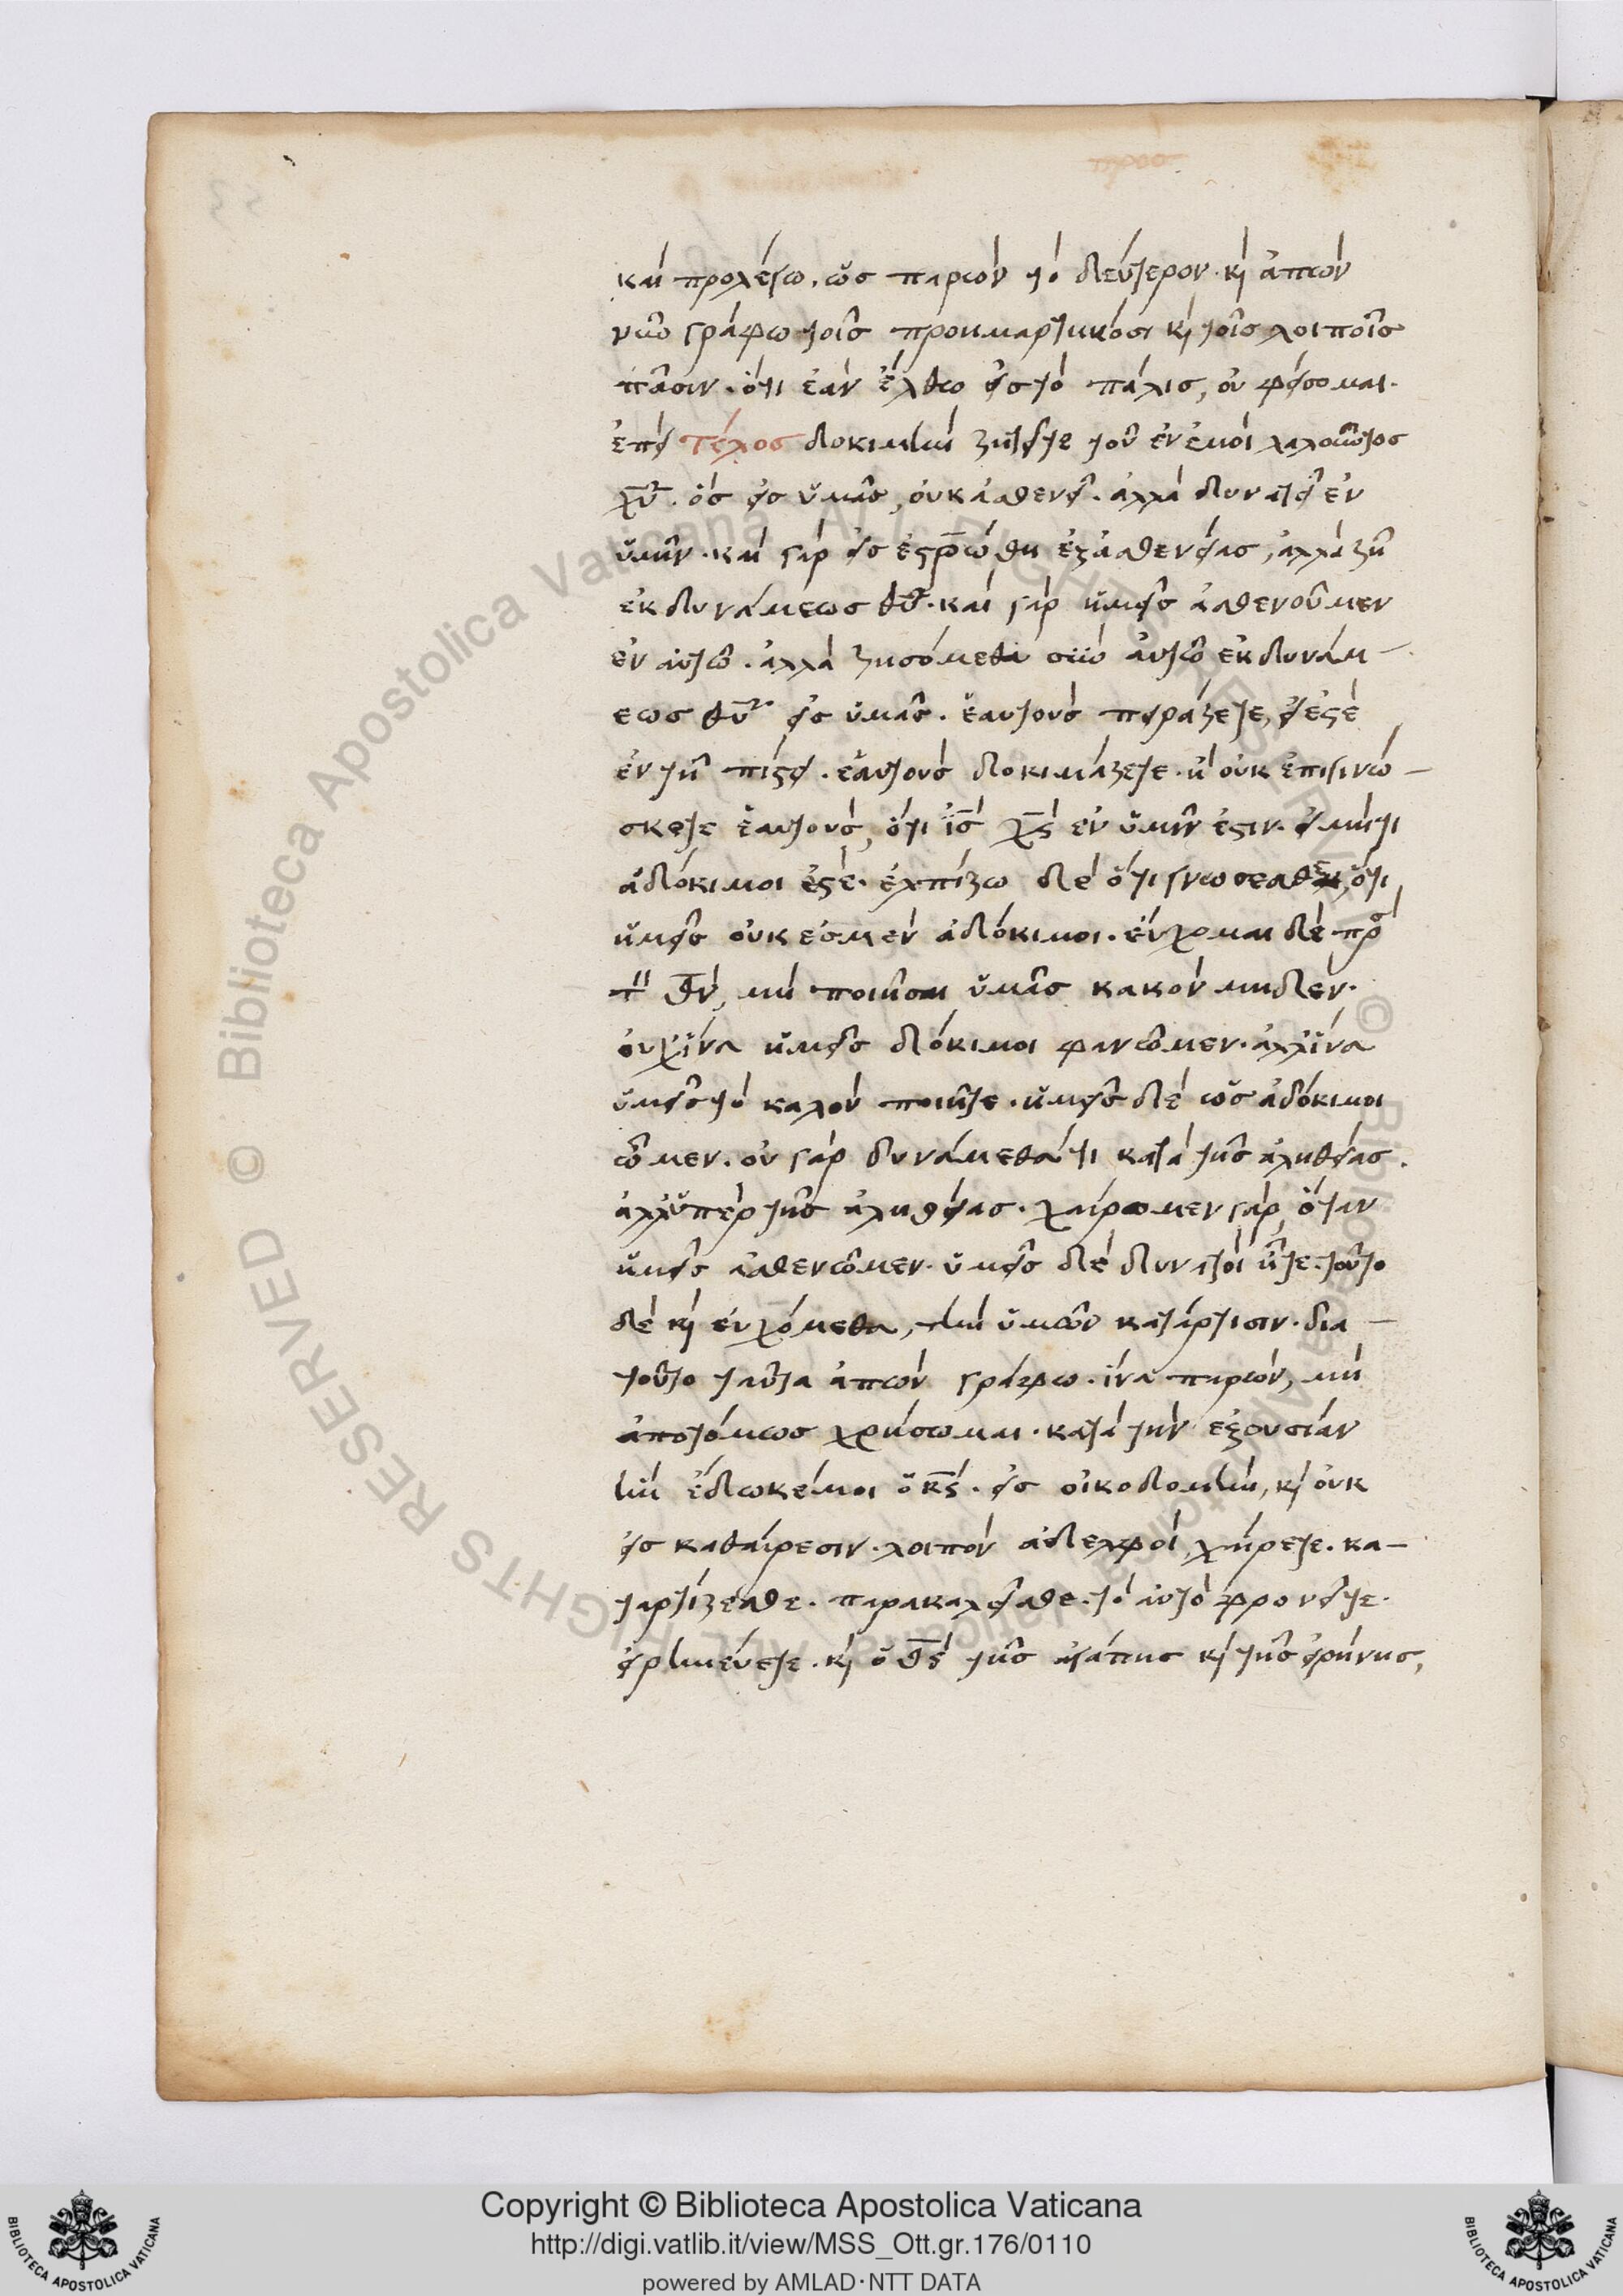 καὶ προλέγω. ὡς παρὼν τὸ δεύτερον. κ(αὶ) ἀπὼν
νῦν γράφω τοῖς προημαρτηκόσι κ(αὶ) τοῖς λοιποῖς
πᾶσιν. ὅτι ἐὰν ἔλθω εἰς τὸ πάλιν, οὐ φείσομαι.
ἐπεὶ τέλος δοκιμὴν ζητεῖτε τοῦ ἐν ἐμοὶ λαλοῦντος
χ̅υ̅. ὃς εἰς ὑμᾶς, οὐκ ἀσθενεῖ. ἀλλὰ δυνατεῖ ἐν
ὑμῖν. καὶ γὰρ εἰς ἐσ̅ρ̅ώθη ἐξ ἀσθενείας, ἀλλὰ ζῇ
ἐκ δυνάμεως θ̅υ̅. καὶ γὰρ ἡμεῖς ἀσθενοῦμεν
ἐν αὐτῶ. ἀλλὰ ζησόμεθα σὺν αὐτῶ ἐκ δυνάμ-
εως θ̅υ̅ εἰς ὑμᾶς. ἑαυτοὺς πειράζετε, εἰ ἐστὲ
ἐν τῇ πίστει. ἑαυτοὺς δοκιμάζετε. ἢ οὐκ ἐπιγινώ-
σκετε ἑαυτοὺς, ὅτι ι̅ς̅ χ̅ς̅ ἐν ὑμῖν ἐστιν. εἰ μήτι
ἀδόκιμοι ἐστέ. ἐλπίζω δὲ ὅτι γνώσεσθε, ὅτι
ἡμεῖς οὐκ ἐσμὲν ἀδόκιμοι. εὔχομαι δὲ πρὸς
τὸν θ̅ν̅, μὴ ποιῆσαι ὑμᾶς κακὸν μηδέν.
οὐχ ἵνα ἡμεῖς δόκιμοι φανῶμεν. ἀλλ' ἵνα
ὑμεῖς τὸ καλὸν ποιῆτε. ἡμεῖς δὲ ὡς ἀδόκιμοι
ὦμεν. οὐ γὰρ δυνάμεθά τι κατὰ τῆς ἀληθείας.
ἀλλ' ὑπὲρ τῆς ἀληθείας. χαίρομεν γὰρ, ὅταν
ἡμεῖς ἀσθενῶμεν. ὑμεῖς δὲ δυνατοὶ ἦτε. τοῦτο
δὲ κ(αὶ) εὐχόμεθα, τὴν ὑμῶν κατάρτισιν. δια-
τοῦτο ταῦτα ἀπὼν γράφω. ἵνα παρὼν, μὴ
ἀποτόμως χρήσωμαι. κατὰ τὴν ἐξουσίαν
ἣν ἔδωκέ μοι ὁ κ̅ς̅. εἰς οἰκοδομὴν, κ(αὶ) οὐκ
εἰς καθαίρεσιν. λοιπὸν ἀδελφοὶ, χαίρετε. κα-
ταρτίζεσθε. παρακαλεῖσθε. τὸ αὐτὸ φρονεῖτε.
εἰρηνεύετε. κ(αὶ) ὁ θ̅ς̅ τῆς ἀγάπης κ(αὶ) τῆς εἰρήνης,
Copyright © Biblioteca Apostolica Vaticana
http://digi.vatlib.it/view/MSS_Ott.gr.176/0110
powered by AMLAD·NTT DATA